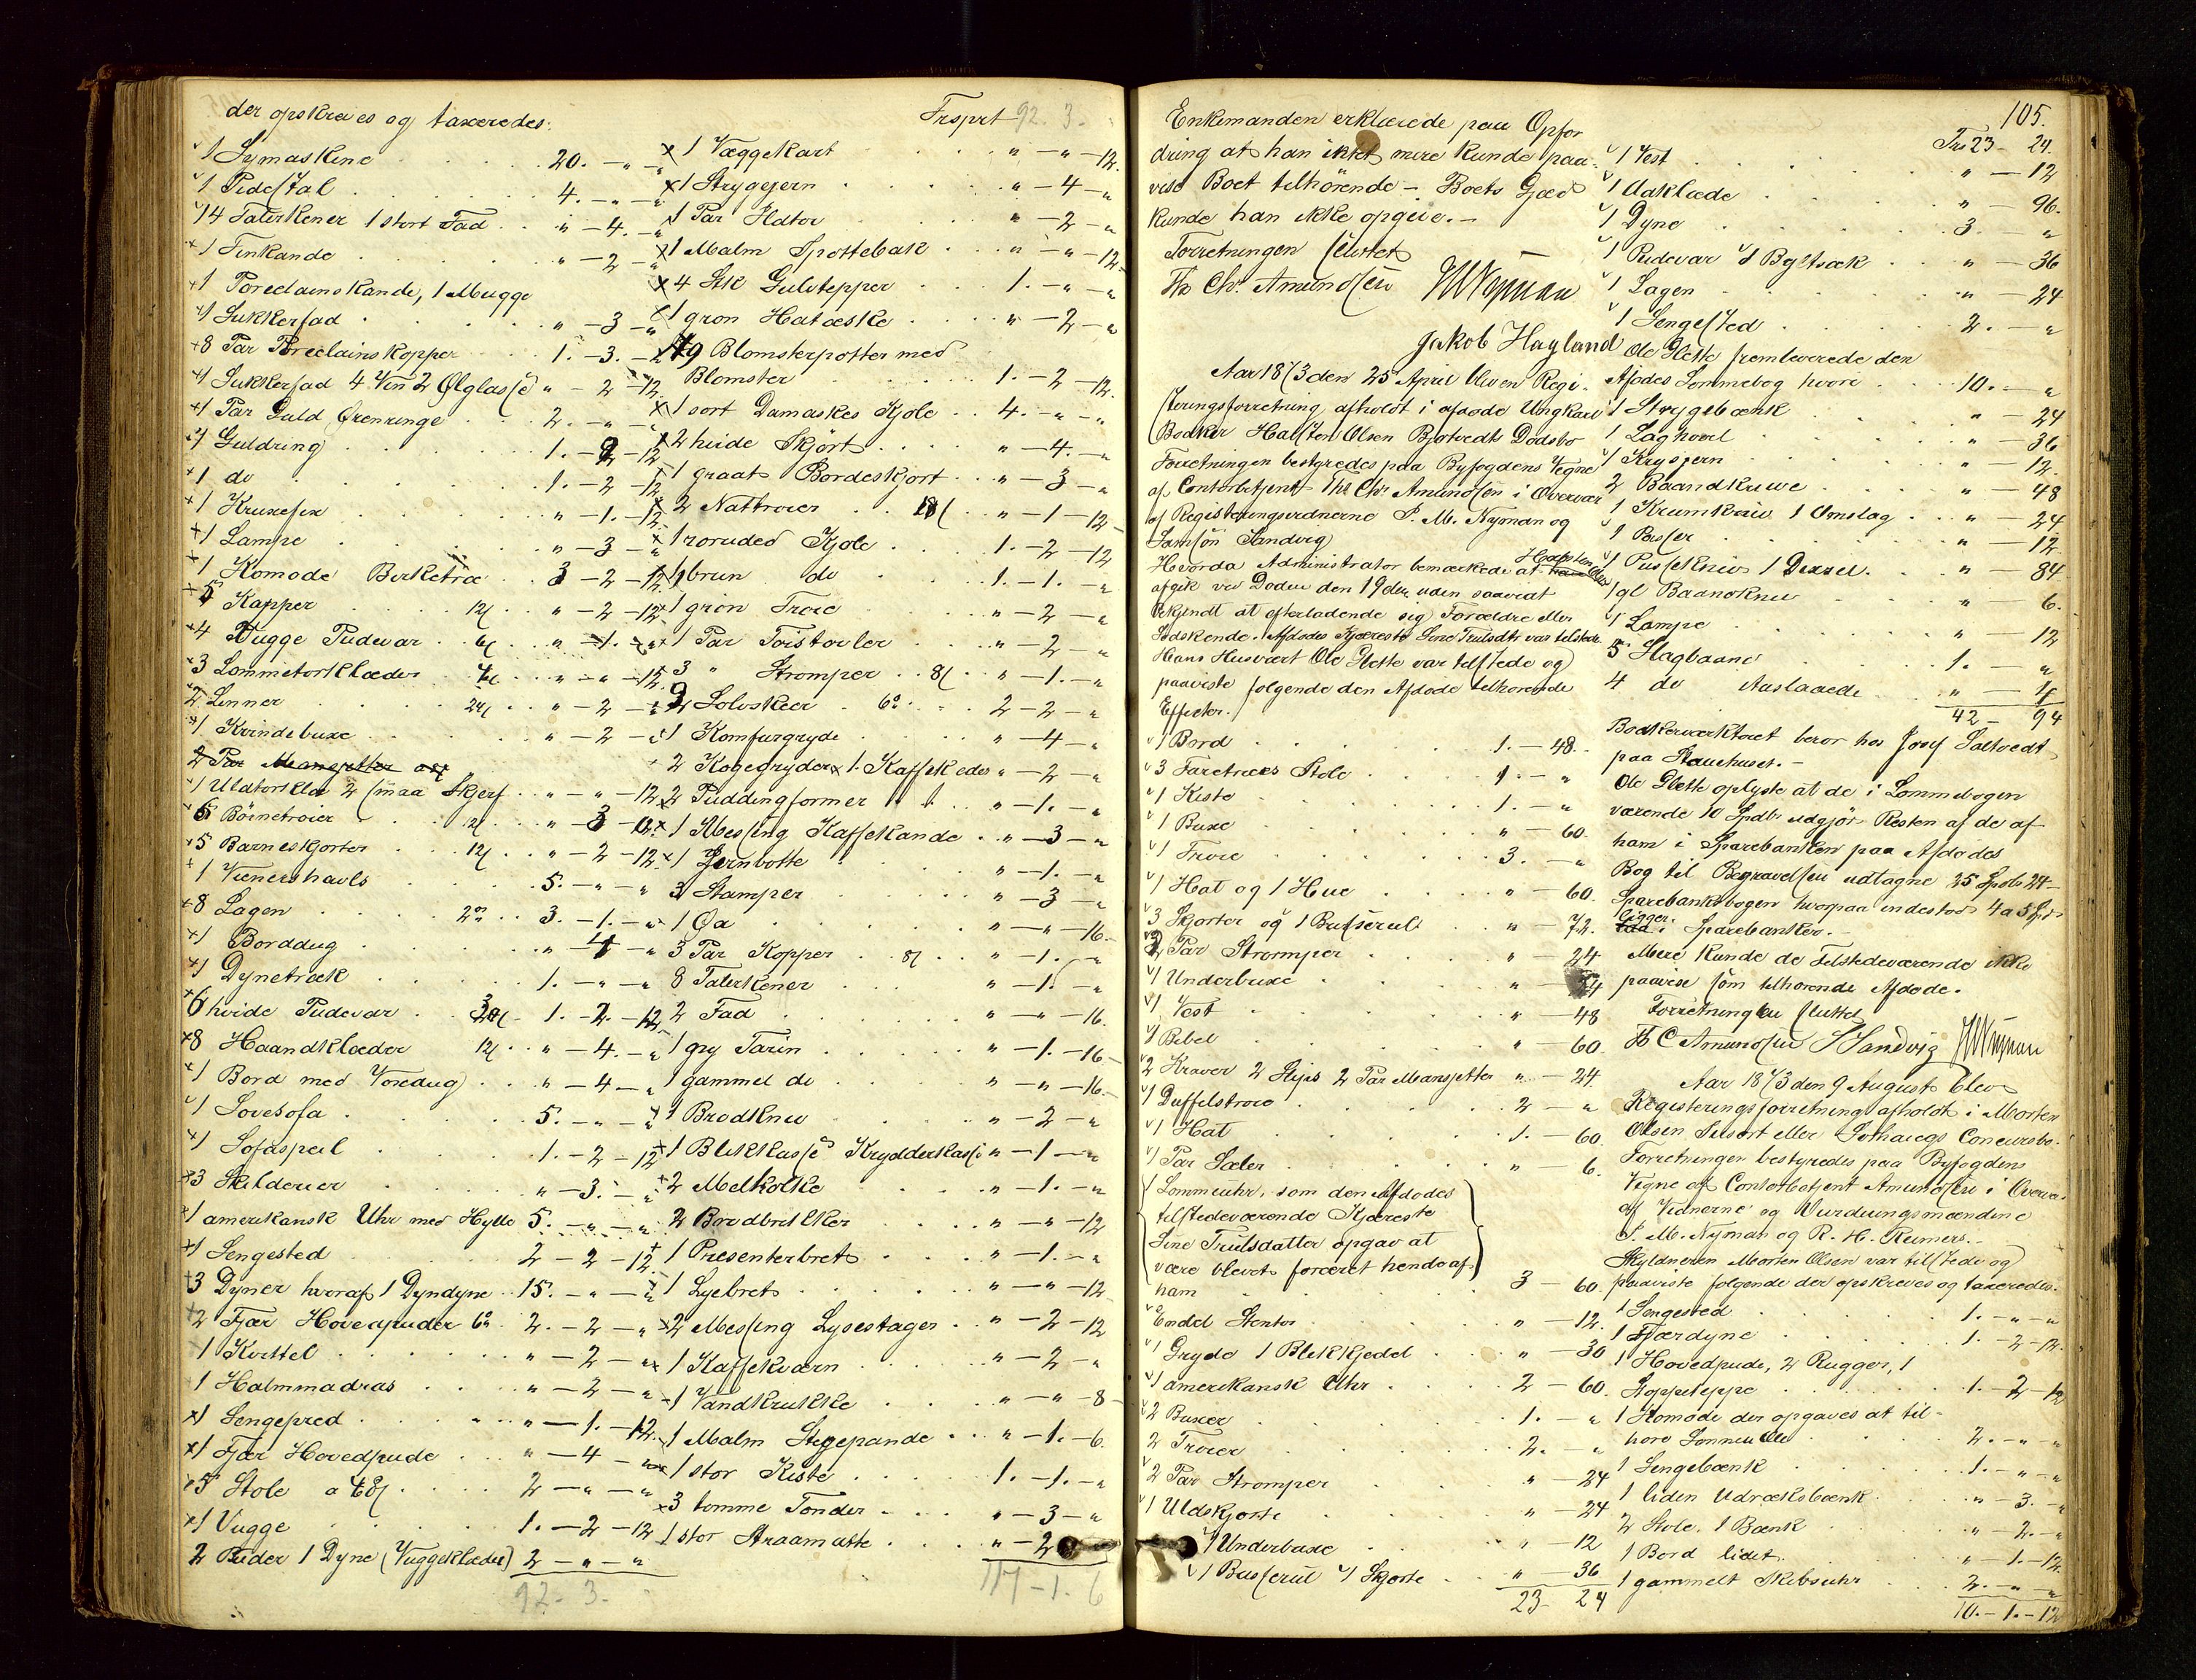 der opskreves og taxeredes:
1 Symaskine 20. - " - "
1 Pidestal 4. - " - "
14 Talerkener 1 stort Fad " - 4. - "
1 Tinkande " - 2 - "
1 Porcelainskande, 1 Mugge
1 Sukkerfad " - 3 - "
8 Par Porcelainskopper 1. - 3. - 12
1 Sukkerfad 4 Vin 2 Ølglasse " - 2 - 12
1 Par Guld Ørenringe 2. - " - "
1 Guldring 1. - 2 - 12
1 do 1. - 2 - 12
1 Krusefix " - 1. - 12
1 Lampe " - 3 - "
1 Komode Birketræ 3 - 2 - 12
5 Kapper 12ʃ " - 2 - 12
4 Vugge Pudevar 6ʃ " - 1. - "
3 Lommetorklæder 4ʃ " - " - 12
2 Linner 24ʃ " - 2 - "
1 Kvindebuxe " - 2 - "
2 Par Mansjetter
1 Uldtorklæ 2 smaa Skjerf " - " - 12
6 Börnetroier 12ʃ " - 3 - "
5 Barneskjorter 12ʃ " - 2 - 12
1 Vienershavls 5. - " - "
8 Lagen 2 3. - 1. - "
1 Borddug " - 4 - "
1 Dynetræk 1. - " - "
6 hvide Pudevar 1. - 2. - 12
8 Haandklæder 12ʃ " - 4. - "
1 Bord med Voxdug " - 4 - "
1 Sovesofa 5. - " - "
1 Sofaspeil 1. - 2 - 12
3 Skilderier " - 3. - "
1 amerikansk Uhr med Hylle 5. - " - "
1 Sengested 2 - 2 - 12
3 Dyner hvoraf 1 Dyndyne 15. - " - "
2 Fjær Hovedpuder 2. - 2 - "
1 Kvittel " - 2 - "
1 Halmmadras " - 2 - "
1 Sengepred " - 1. - 12
1 Fjær Hovedpude " - 4 - "
5 Stole a 48ʃ 2 - " - "
1 Vugge 1. - 2 - 12
2 Puder 1 Dyne (Vuggeklæder) 2 - " - "
92 - 3. -
Trsprt 92. 3.
1 Væggekart " - " - 12.
1 Strygejern " - 4 - "
1 Par Ildtor " - 2 - "
1 Malm Spottebak " - " - 12
4 Stk Gulvtepper 1. - " - "
1 grøn Hatæske " - 2 - "
19 Blomsterpotter med
Blomster 1. - 2 - 12.
1 sort Damaskes Kjole 4. - " - "
2 hvide Skjört " - 4. - "
1 graat Bordeskjort " - 3 - "
2 Nattroier 18ʃ " - 1 - 12
1 roruded Kjole 1. - 2 - 12
1 brun do 1. - 1. - "
1 grön Troie " - 2 - "
1 Par Toistovler " - 2 - "
3 " Stromper 8ʃ " - 1. - "
2 Solvskeer 2 - 2 - "
1 Komfurgryde " - 4 - "
2 Kogegryder 1 Kaffekedel " - 2 - "
2 Puddingformer " - 1. - "
1 Messing Kaffekande " - 3 - "
1 Jernbotte " - 1. - "
3 Stamper " - 3 - "
1 Øx " - " - 16
3 Par Kopper 8ʃ " - 1. - "
8 Talerkener " - 1. - "
2 Fad " - " - 16.
1 ny Tarin " - 1. - 16
1 gammel do " - " - 16
1 Brodkniv " - 2 - "
1 Blikkasse Krydderkasse " - 1 - "
2 Melkolke " - 1. - "
2 Brodbrikker " - " - 12
1 Presenterbret " - 1. - "
1 Lyebret " - " - 12
2 Messing Lysestager " - 2 - 12
1 Kaffekværn " - 2 - "
1 Vandkrukke " - " - 8
1 Malm Stegepande " - 1. - 6.
1 stor Kiste 1. - 1. - "
3 tomme Tonder " - 3 - "
1 stor Straamatte " - 2
117 - 1. 6
105.
Enkemanden erklærede paa Opfor
dring at han ikke mere kunde paa-
vise Boet tilhörende - Boets Gjæld
kunde han ikke opgive. -
Forretningen sluttet
Th Chr. Amundsen JMNyman
Jakob Hayland
Aar 1873 den 25 April blev en Regi-
steringsforretning afholdt i afdøde Ungkarl
Bodker Halsten Olsen Bjotvedts Dodsbo
Forretningen bestyredes paa Byfogdens Vegne
af Contorbetjent Th Chr Amundsen i Overvær
af Registeringsvidnerne J. M. Nyman og
Samson Sandvig
Hvorda Administrator bemærkede at Halsten Olsen
afgik ved Doden den 19de uden saavidt
bekjendt at efterladende sig Forældre eller
Sodskende. Afdodes Kjæreste Sine Trulsdtr var tilstede.
Hans Husvært Ole Glette var tilstede og
paaviste folgende den Afdode tilhorende
Effecter.
1 Bord 1. - 48.
3 Faretræes Stole 1. - "
1 Kiste 1. - "
1 Buxe " - 60.
1 Troie 3. - "
1 Hat og 1 Hue " - 60.
3 Skjorter og 1 Busserul " - 72.
2 Par Strømper " - 24
1 Underbuxe " - 24
1 Vest " - 48
1 Bibel " - 60.
2 Kraver 2 Slips 2 Par Mansjetter " - 24.
1 Duffelstroie 2 - "
1 Hat 1. - 60.
1 Par Sæler " - 6.
1 Lommeuhr, som den Afdodes
tilstedeværende Kjæreste
Sine Trulsdatter opgav at
være blevet foræret hende af
ham 3 - 60.
Endel Stentoi " - 12.
1 Gryde 1 Blikkjedel " - 30
1 amerikansk Uhr 2 - 60.
2 Buxer 1. - "
2 Troier 2. - "
2 Par Stromper " - 24
1 Uldskjorte " - 24
1 Underbuxe " - 12
1 Busserul 1 Skjorte " - 36
23 - 24
Trs 23 - 24.
1 Vest " - 12
1 Aaklæde " - 96.
1 Dyne 3. - "
1 Pudevar 1 Byltsæk " - 36
1 Lagen " - 24
1 Sengested 2. - "
Ole Glette fremleverede den
Afdodes Lommebog hvori 10. - "
1 Strygebænk " - 24
1 Laghovel " - 36
1 Krysjern " - 12.
2 Baandkruve " - 48
1 Krumkniv 1 Omslag " - 24
1 Passer " - 12
1 Pudsekniv 1 Dexsel " - 84
1 gl Baandkniv " - 6.
1 Lampe " - 12
5 Slagbaand 1. - "
4 do Aaslaaede " - 4
42 - 94
Bodkerværktoiet beror hos Josef Saltvedt
paa Stauehuset. -
Ole Glette oplyste at de i Lommebogen
værende 10 Spdlr udgjör Resten af de af
ham i Sparebanken paa Afdodes
Bog til Begravelsen udtagne 25 Spdlr 24 -
Sparebankbogen hvorpaa indestod 4 a 5 Spd
ligger i Sparebanken. -
Mere kunde de Tilstedeværende ikke
paavise som tilhorende Afdøde.
Forretningen sluttet
Th C Amundsen S Sandvig JMNyman
Aar 1873 den 9 August blev
Registeringsforretning afholdt i Morten
Olsen eller Concursbo.
Forretningen bestyredes paa Byfogdens
Vegne af Contorbetjent Amundsen i Overvær
af Vidnerne og Vurdringsmændene
J. M. Nyman og R. H. Reimers. -
Skyldneren Morten Olsen var tilstede og
paaviste folgende der opskreves og taxeredes.
1 Sengested 1. - " - "
1 Fjærdyne 1. - 2 - 12.
1 Hovedpude, 2 Rugger, 1
Koppeteppe 1. - 2 - 12
1 Komode der opgaves at til-
hore Sonnen Ole 2. - " - "
1 Sengebænk 1. - " - "
1 liden Udræksbænk " - 3. - "
2 Stole, 1 Bænk " - 2. - "
1 Bord lidet " - 1 - 12
1 gammelt Skibsuhr 2. - " - "
10. - 1. - 12